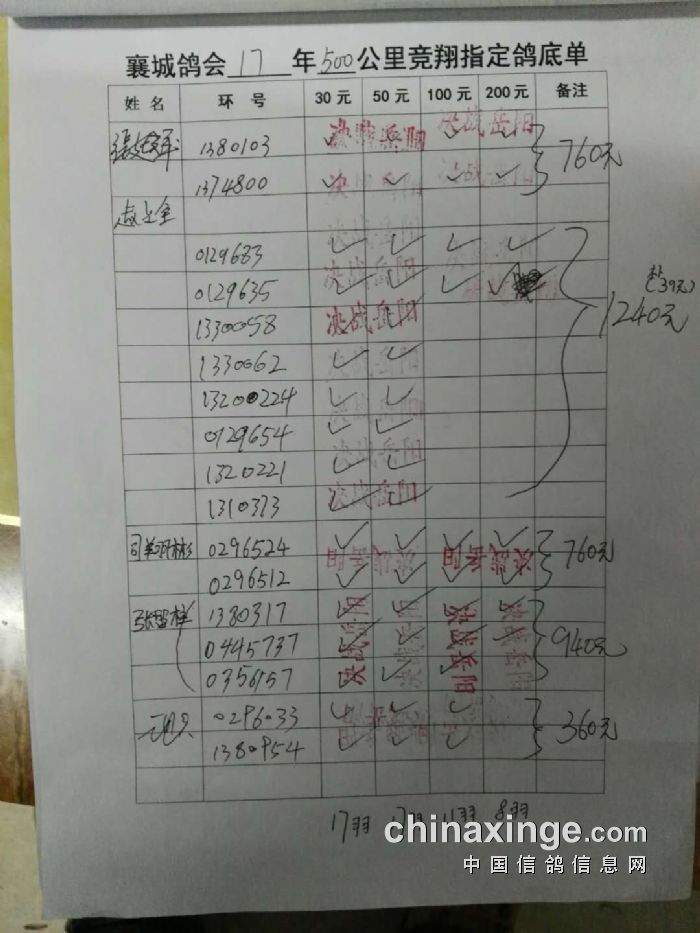 襄城鸽会 17 年 500 公里竞翔指定鸽底单
姓名 环号 30元 50元 100元 200元 备注
1380103 ✓ ✓ ✓ ✓ 760元
决战岳阳 决战岳阳
1374800 ✓ ✓ ✓ ✓
决战岳阳 决战岳阳
决战岳阳
0129683 ✓ ✓ ✓ ✓
决战岳阳
0129635 ✓ ✓ ✓ ✓
(39元)
1240元
1330058
决战岳阳
1330062 ✓ ✓
决战岳阳
13200224 ✓ ✓
决战岳阳
0129654 ✓ ✓
决战岳阳
1320221 ✓ ✓
1310373 ✓ ✓
决战岳阳
0296524 ✓ ✓ ✓ ✓ 760元
决战岳阳 决战岳阳
0296512 ✓ ✓ ✓ ✓
1380317 ✓ ✓ ✓ ✓
0445737 ✓ ✓ ✓ ✓ 940元
决战岳阳 决战岳阳
0356957 ✓ ✓
0296033 ✓ ✓ ✓ 360元
1380954 ✓ ✓ ✓
17羽 17羽 11羽 8羽
chinaxinge.com
中国信鸽信息网